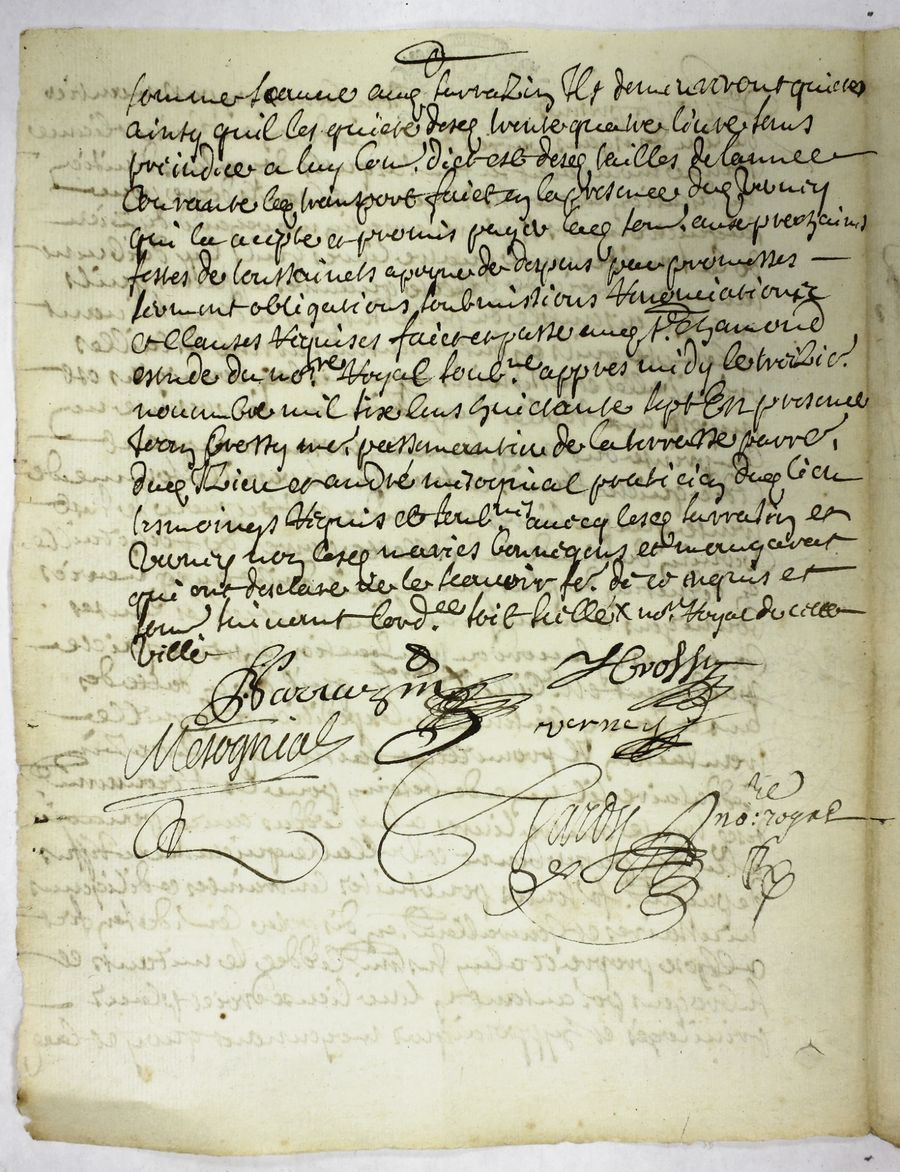 somme Jeanne aud. sarrazin Ils demeureront quictes
ainsy quil les quicte desd. trente quatre livre sans
preiudice a luy com. dict est desd. tailles de lannee
Courante led. transport faict en la presence dud. Verney
qui la acepte et promis payer lad. som. aux prochaines
festes de toussaincts a peyne de despens par promesses
serment obligations soubmissions Renonciations
et clauses Requises faict et passe aud. St. Chamond
estude du no.re Royal soub.ne appres midy le treizie.
novembre mil six cens huictante sept En presence
Jean Crossy me. passmantier de la terrasse parre.
dud. lieu et andré mesognial praticien dud. lieu
tesmoingts Requis et soub.nes avecq lesd. sarrasin et
Verney non lesd. maries
qui ont desclare ne le scavoir fe. de ce enquis et
som. suivant lord.ce soit scellé x no.re Royal de cette
ville
Sarrazin
JCrossy
Mesognial
verney
Tardy no:re royal